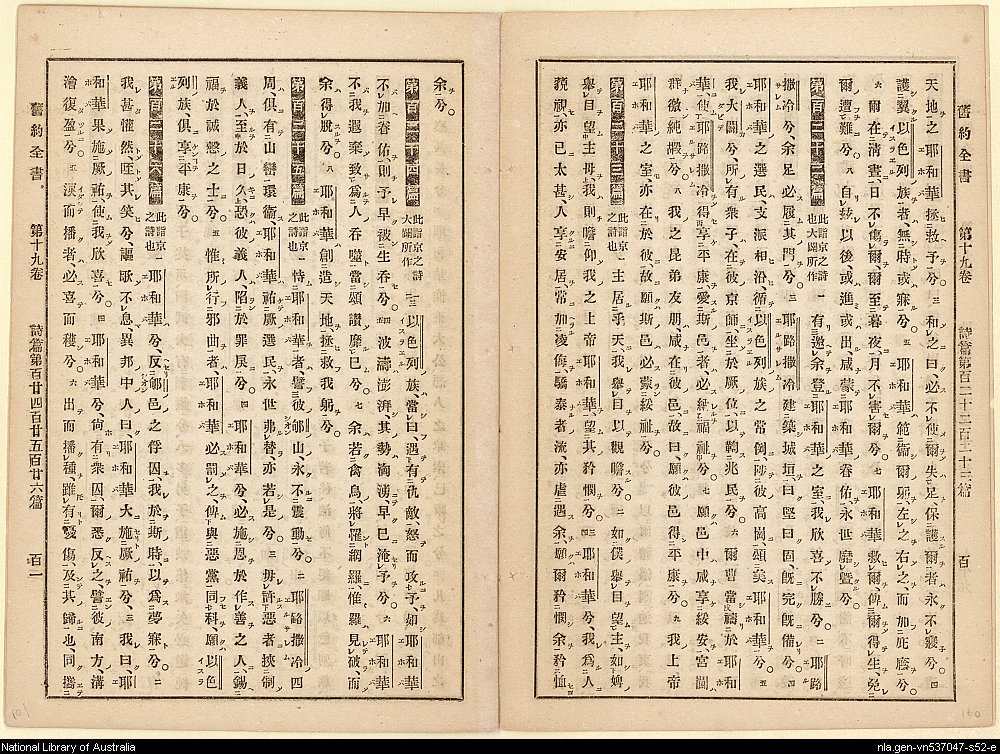 舊約全書 第十九卷 詩篇第百二十二百二十三篇 百
天地之耶和華拯救予兮、三 和之曰、必不使爾失足、保護爾者、永不寢兮、四
護翼以色列族者、無時或寐兮、五 耶和華範衞爾躬、左之右之、而加庇廕兮、
六 爾在清晝、日不傷爾、爾至暮夜、月不害爾兮、七 耶和華救爾、俾爾得生、免
爾遭難兮、八 自玆以後、或進或出、咸蒙耶和華眷佑、永世靡曁兮、
第百二十二篇 此詣京之詩也大闢所作 一 有邀余登耶和華之室、我欣喜不勝兮、二 耶路
撒冷兮、余足必履其門兮、三 耶路撒冷建築城垣、曰堅曰固、旣完旣備兮、四
耶和華之選民、支派相沿、循以色列族之常例、陟彼高崗、頌美耶和華兮、五
我大闢兮、所有衆子、在彼京師、坐於厥位、以鞫兆民兮、六 爾曹當禱於耶和
華、使耶路撒冷得享平康、愛斯邑者、必納福祉兮、七 願邑中咸享綏安、宮闈
群徵純嘏兮、八 我之昆弟友朋、咸在彼邑、故曰、願彼邑得平康兮、九 我上帝
耶和華之室、亦在於彼、故願斯邑必蒙綏祉兮、
第百二十三篇 此詣京之詩也 一 主居乎天、我舉目以觀瞻兮、二 如僕舉目望主、如婢
舉目望主母、我則瞻仰我之上帝耶和華、望其矜憫兮、三 耶和華兮、我爲人
藐視、亦已太甚、人享安居、常加凌侮、驕泰者流、亦虐遇余、願爾矜憫余、矜恤
余兮、
第百二十四篇 此詣京之詩大闢所作 一二三 以色列族、當曰、遇有仇敵、怒而攻予、如耶和華
不加眷佑、則予早被生吞兮、四五 波濤澎湃、其勢洶湧、早已淹予兮、六 耶和華
不我遐棄、致爲人吞噬、當頌讚靡已兮、七 余若禽鳥、將罹網羅、惟羅見破、而
余得脫兮、八 耶和華創造天地、拯救我躬兮、
第百二十五篇 此詣京之詩也 一 恃耶和華者、譬彼郇山、永不震動兮、二 耶路撒冷四
周、俱有山巒環衞、耶和華祐厥選民、永世弗替、亦若是兮、三 毋許惡者挾制
義人、至於日久、恐彼義人、陷於罪戾兮、四 耶和華兮、必施恩於作善之人、錫
福於誠慤之士兮、五 惟所行邪曲者、耶和華必罰之、俾與惡黨同科、願以色
列族、俱享平康兮、
第百二十六篇 此詣京之詩也 一 耶和華兮、反郇邑之俘囚、我於斯時、以爲夢寐兮、二
我甚懽然、咥其笑兮、謳歌不息、異邦中人曰、耶和華大施厥祐兮、三 我曰、耶
和華果施厥祐、使我欣喜兮、四 耶和華兮、尙有衆囚、爾悉反之、譬彼南方溝
澮復盈兮、五 淚而播者、必喜而穫兮、六 出而播種、雖有憂傷、及其歸也、同攜
舊約全書 第十九卷 詩篇第百廿四百廿五百廿六篇 百一
National Library of Australia
nla.gen-vn537047-s52-e